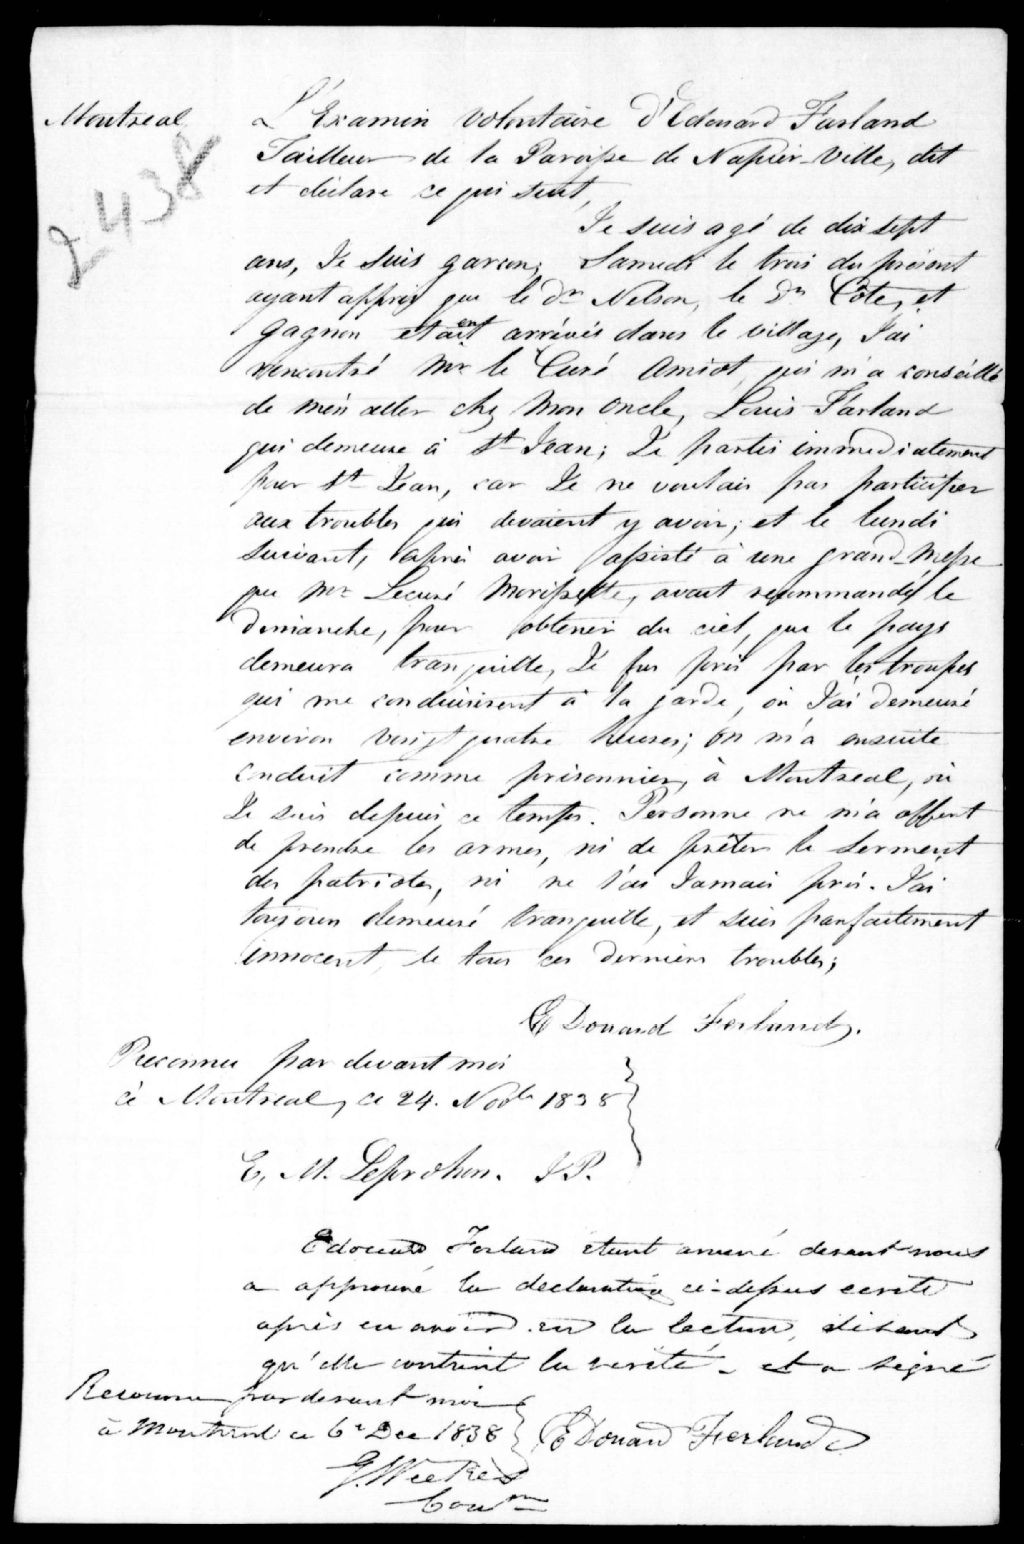 Montreal
2438
L'Examin volontaire d'Edouard Farland
Tailleur de la Paroisse de Napier-Ville, dit
et déclare ce qui suit,
Je suis agé de dix sept
ans, Je suis garcon; Samedi le trois du présent
ayant appris que le Dr Nelson, le Dr Côte, et
Gagnon etaient arrivés dans le village, J'ai
rencontré Mr le Curé Amiot, qui m'a conseillé
de m'en aller chez mon oncle, Louis Farland
qui demeure à St Jean; Je partis immediatement
pour St Jean, car Je ne voulais pas participer
aux troubles qui devaient y avoir; et le lundi
suivant, après avoir assisté à une grand-Messe
que Mr Lecuré Morissette, avait recommandé le
dimanche, pour obtenir du ciel, que le pays
demeura tranquille, Je fus pris par les troupes
qui me conduisirent à la garde, où J'ai demeuré
environ vingt quatre heures; on m'a ensuite
conduit comme prisonnier, à Montreal, où
Je suis depuis ce temps. Personne ne m'a offert
de prendre les armes, ni de prêter le serment
des patriotes, ni ne l'ai Jamais pris. J'ai
toujours demeuré tranquille, et suis parfaitement
innocent de tous ces derniers troubles;
EDouard Ferland.
Reconnu par devant moi
à Montreal, ce 24. Novbr 1838
E, M. Leprohon. J.P.
Edouard Ferland étant amené devant nous
a approuvé la declaration ci-dessus ecrite
après en avoir eu la lecture, disant
qu'elle contient la verité - et a signé
Reconnu par devant moi
à Montreal ce 6e Dec 1838
EDouard Ferland
G. Weekes
Comre